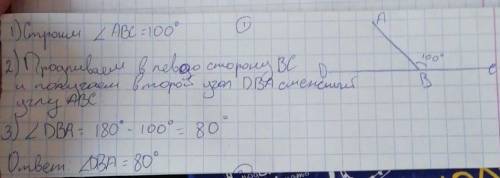 1) Строим ∠ABC=100°
2) Продливаем в левую сторону BC
и получаем второй угол DBA смежный
углу ABC
3) ∠DBA = 180° - 100° = 80°
Ответ ∠DBA = 80°
1
A
100°
D
B
C